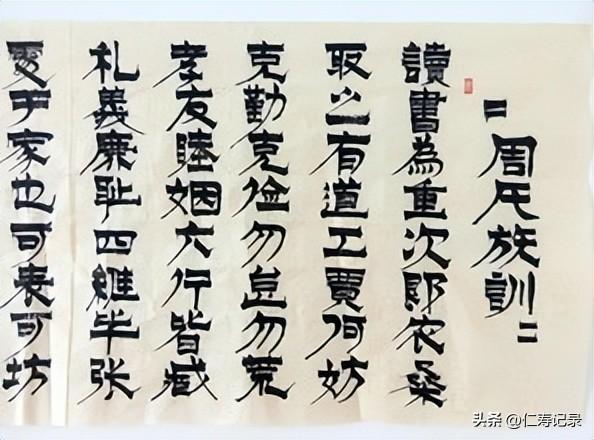 周氏族訓
讀書為重次即农桑
取之有道工賈何妨
克勤克俭勿怠勿荒
孝友睦姻六行皆臧
礼義廉耻四維毕张
于家也可表可坊
头条 @仁寿记录